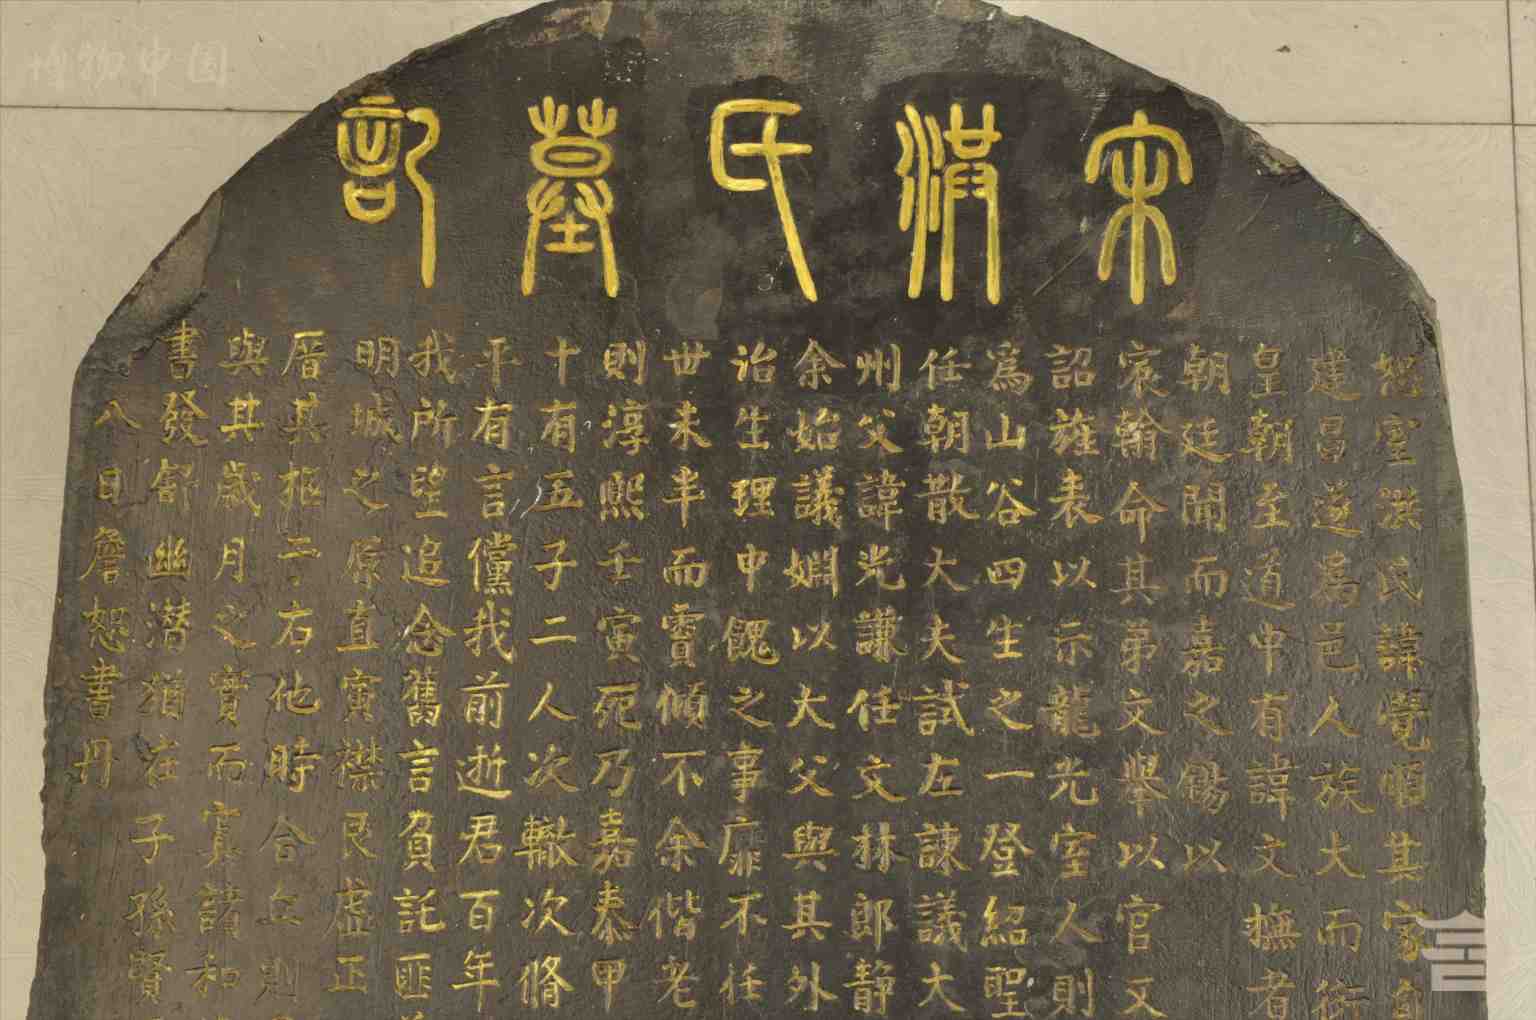 宋洪氏墓記
恕室洪氏諱覺順其家自
建昌遂為邑人族大而衍
皇朝至道中有諱文撫者
朝廷聞而嘉之錫以
宸翰命其弟文舉以官又
詔旌表以示龍光室人則
為山谷四生之一登紹聖
任朝散大夫試左諫議大
州父諱光謙任文林郎静
余始議姻以大父與其外
治生理中餽之事靡不任
世未半而賫傾不余偕老
則淳熙壬寅死乃嘉泰甲
十有五子二人次轍次脩
平有言儻我前逝君百年
我所望追念舊言負託匪
明城之原直寅襟艮虛正
厝其柩二右他時合二則
與其歲月之實而寘諸和
書發舒幽潛猶在子孫賢
八日詹恕書丹
博物中国